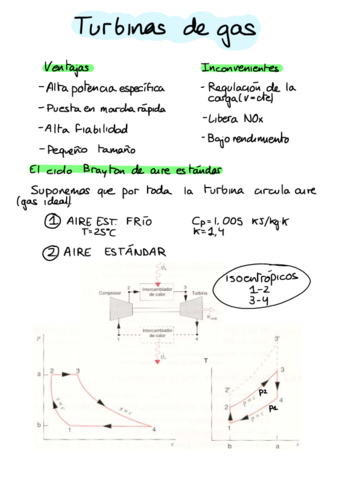 Turbinas de gas
Ventajas
- Alta potencia específica
- Puesta en marcha rápida
- Alta fiabilidad
- Pequeño tamaño
Inconvenientes
- Regulación de la
carga (v=cte)
- Libera NOx
- Bajo rendimiento
El ciclo Brayton de aire estándar
Suponemos que por toda la turbina circula aire
(gas ideal)
1 AIRE EST. FRÍO
T=25°C
Cp=1,005 KJ/kg·K
K=1,4
2 AIRE ESTÁNDAR
ISOENTRÓPICOS
1-2
3-4
Compresor
Intercambiador
de calor
Turbina
2
3
Intercambiador
de calor
1
4
P
a
2
3
s = c
s = c
b
1
4
v
T
3'
3
2'
P2
2
4
P1
1
b
a
s